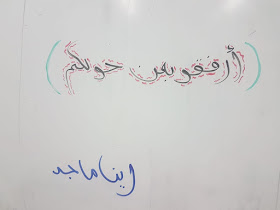 (أرفقو بمن حولكم)
رينا ماجد